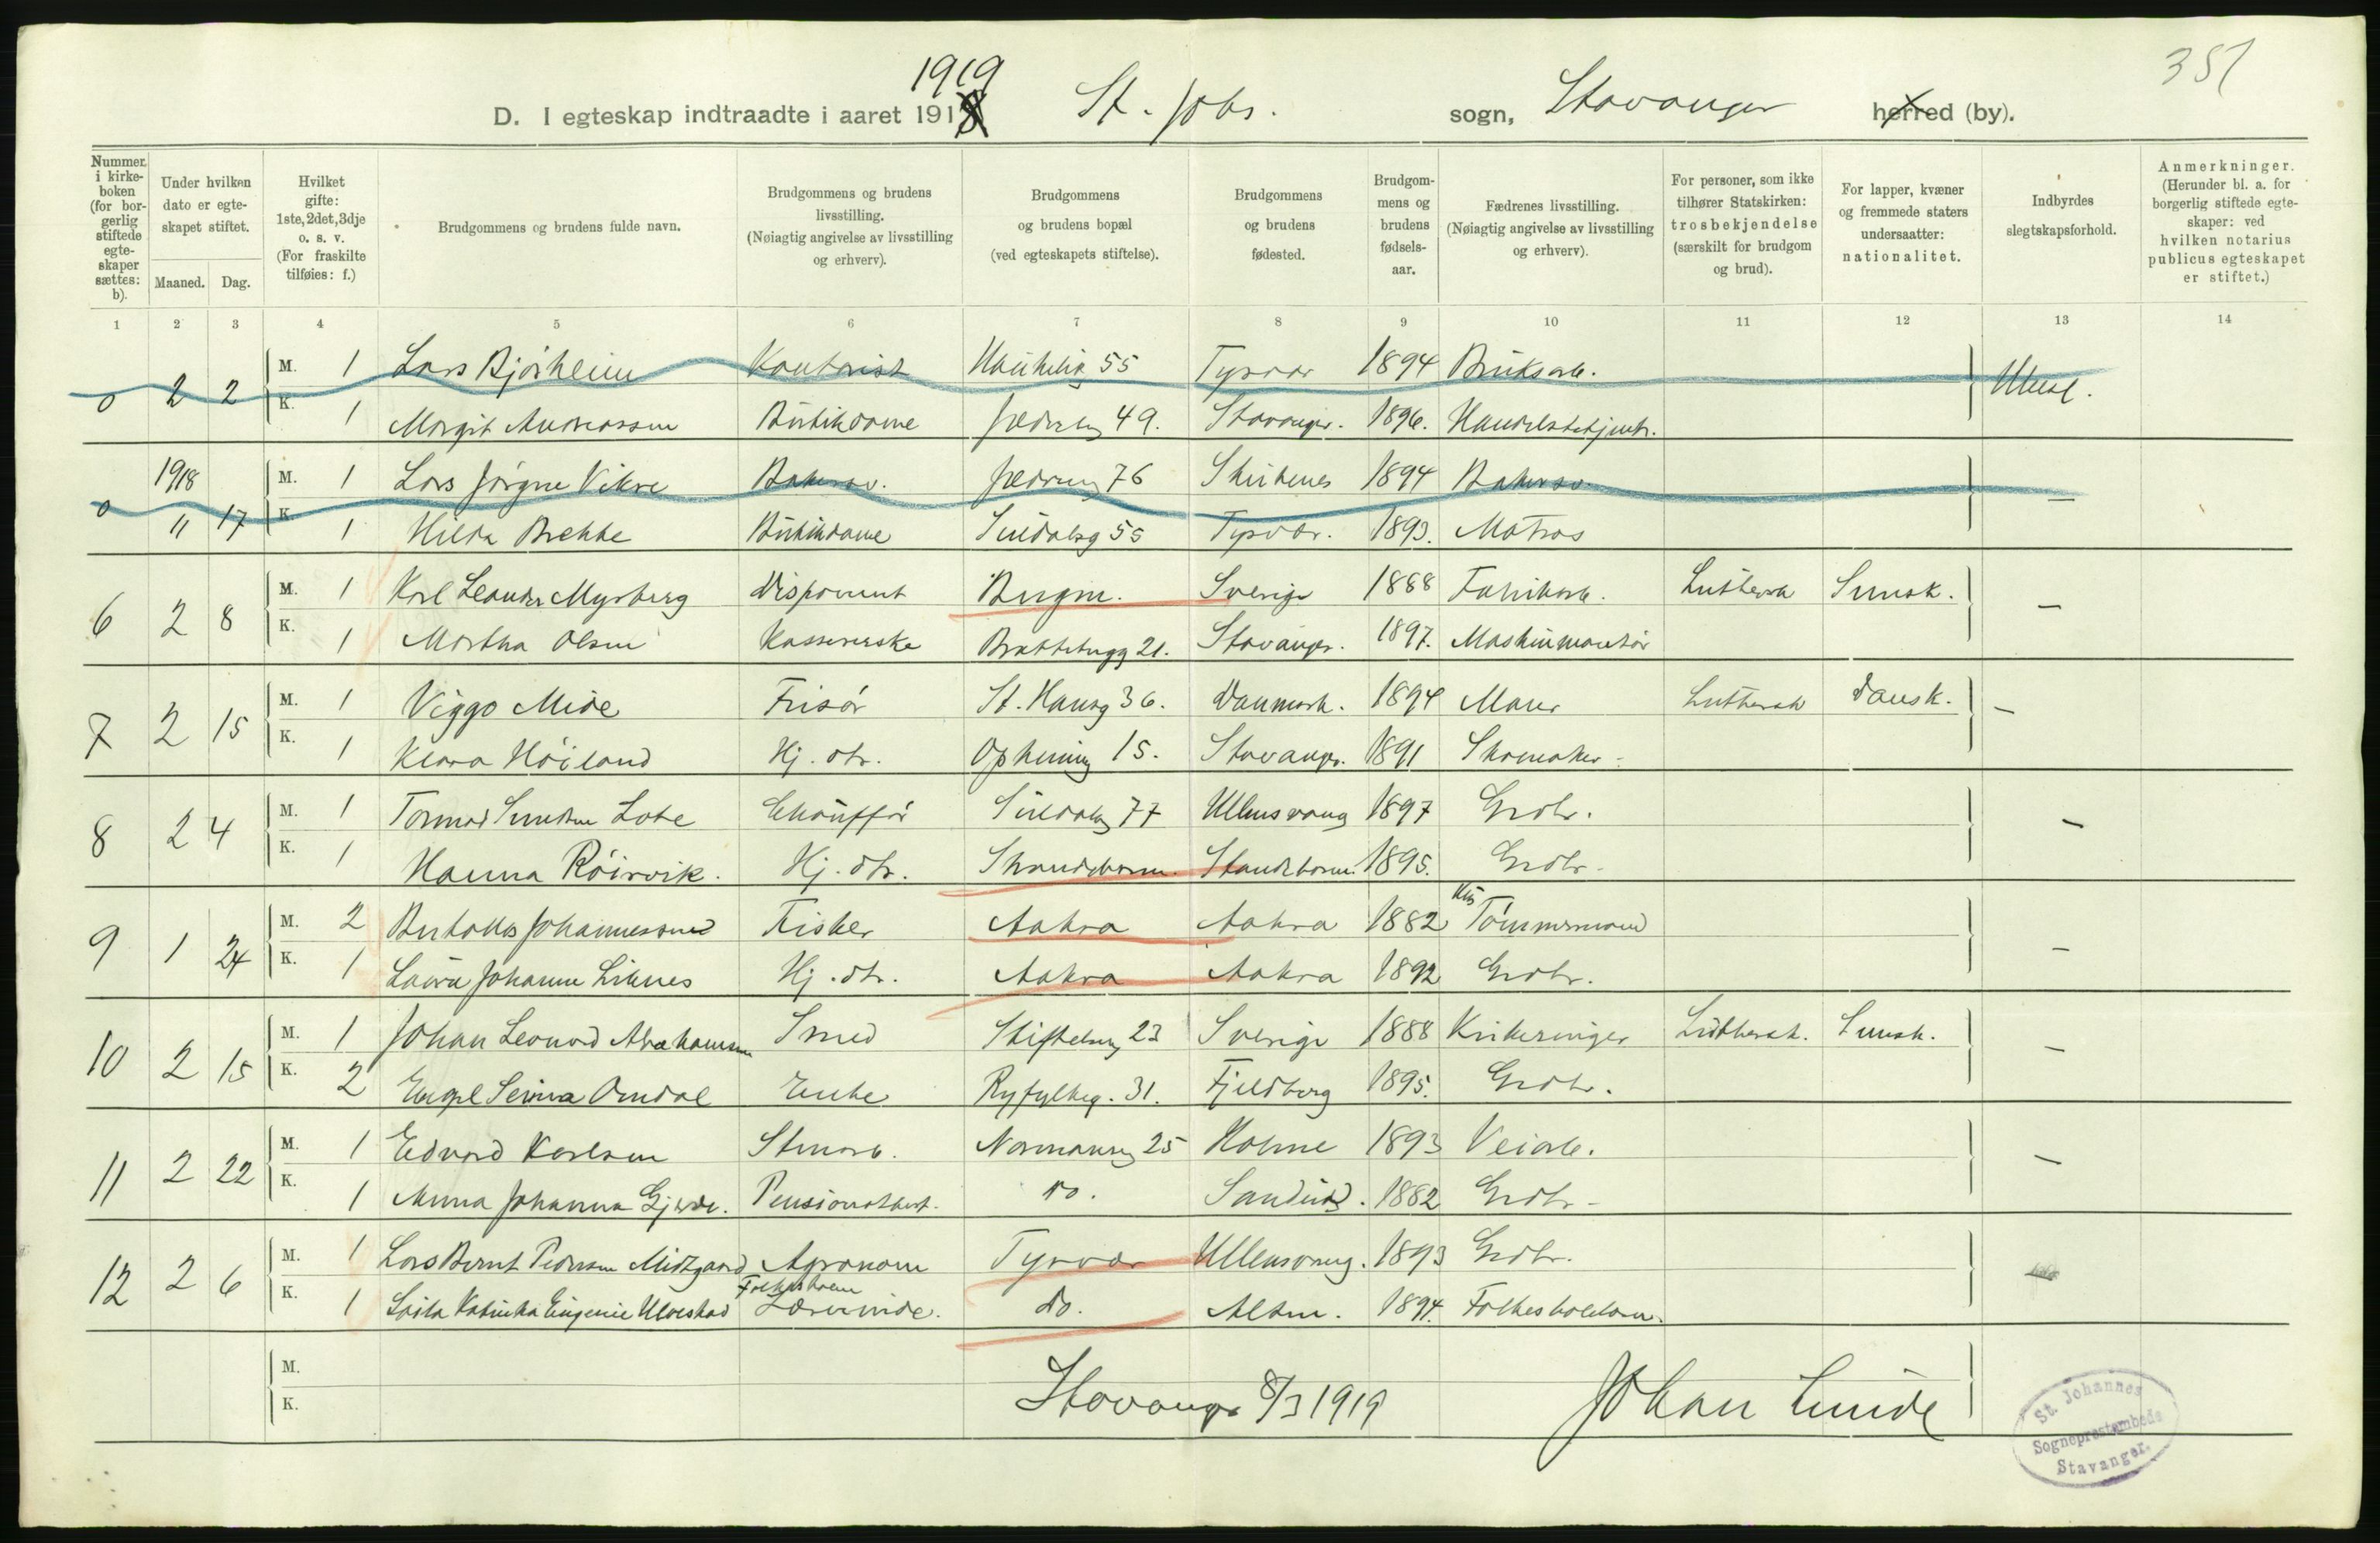 351
1919
D. I egteskap indtraadte i aaret 1918 St. Johs. sogn, Stavanger herred (by).
Nummer i kirkeboken (for borgerlig stiftede egteskaper sættes: b).
Under hvilken dato er egteskapet stiftet.
Maaned. Dag.
Hvilket gifte: 1ste, 2det, 3dje o. s. v. (For fraskilte tilføies: f.)
Brudgommens og brudens fulde navn.
Brudgommens og brudens livsstilling. (Nøiagtig angivelse av livsstilling og erhverv).
Brudgommens og brudens bopæl (ved egteskapets stiftelse).
Brudgommens og brudens fødested.
Brudgommens og brudens fødselsaar.
Fædrenes livsstilling. (Nøiagtig angivelse av livsstilling og erhverv).
For personer, som ikke tilhører Statskirken: trosbekjendelse (særskilt for brudgom og brud).
For lapper, kvæner og fremmede staters undersaatter: nationalitet.
Indbyrdes slegtskapsforhold.
Anmerkninger. (Herunder bl. a. for borgerlig stiftede egteskaper: ved hvilken notarius publicus egteskapet er stiftet.)
1 2 3 4 5 6 7 8 9 10 11 12 13 14
0 2 2 M. 1 Lars Bjórheim Kontorist 55 Tysvær 1894 Bruksarb.
K. 1 Margit Andreassen Butikdame 49. Stavanger. 1896. Handelsbetjent.
1918 M. 1 Lars Jórgen Vikre Bakersv. 76 Skudenes 1894 Bakersv. —
0 11 17 K. 1 Hilda Brekke Butikdame Suldalsg 55 Tysvær. 1893. Matros
6 2 8 M. 1 Karl Leander Myrberg Disponent Bergen. Sverige 1888 Fabrikarb. Luthersk Svensk. —
K. 1 Martha Olsen Kassererske Brattebugg 21. Stavanger. 1897. Maskinmontór
7 2 15 M. 1 Viggo Mide Frisór St. Hansg 36. Danmark. 1894 Maler Luthersk Dansk. —
K. 1 Klara Hóiland Hj. dtr. Opheimsg 15. Stavanger. 1891 Skomaker.
8 2 4 M. 1 Tormod Lote Chaufför Suldalsg 77 Ullensvang 1897 Grdbr. —
K. 1 Hanna Róirvik. Hj. dtr. Strandebarm. Strandebarm. 1895. Grdbr.
9 1 24 M. 2 Johannessen Fisker Aakra Aakra 1882 Tömmermand —
K. 1 Laura Johanne Liknes Hj. dtr. Aakra Aakra 1892 Grdbr.
10 2 15 M. 1 Johan Leonard Abrahamsen Smed Stiftelsesg 23 Sverige 1888 Kirkeringer Luthersk. Svensk. —
K. 2 Engel Serina Omdal Enke Ryfylkeg. 31. Fjeldberg 1895. Grdbr.
11 2 22 M. 1 Edvard Karlsen Stenarb. Normannsg 25 Holme 1893 Veiarb. —
K. 1 Anna Johanna Gjerde. Pensionatbest. do. Sandeid. 1882 Grdbr.
12 2 6 M. 1 Lars Bernt Pedersen Midtgaard Agronom Tysvær Ullensvang. 1893 Grdbr.
K. 1 Laila Katinka Eugenie Folkeskole Lærerinde. do. Alten. 1894. Folkeskolelærer.
M.
K.
Stavanger 8/3 1919 Johan Lunde
St. Johannes
Sogneprestembede
Stavanger.